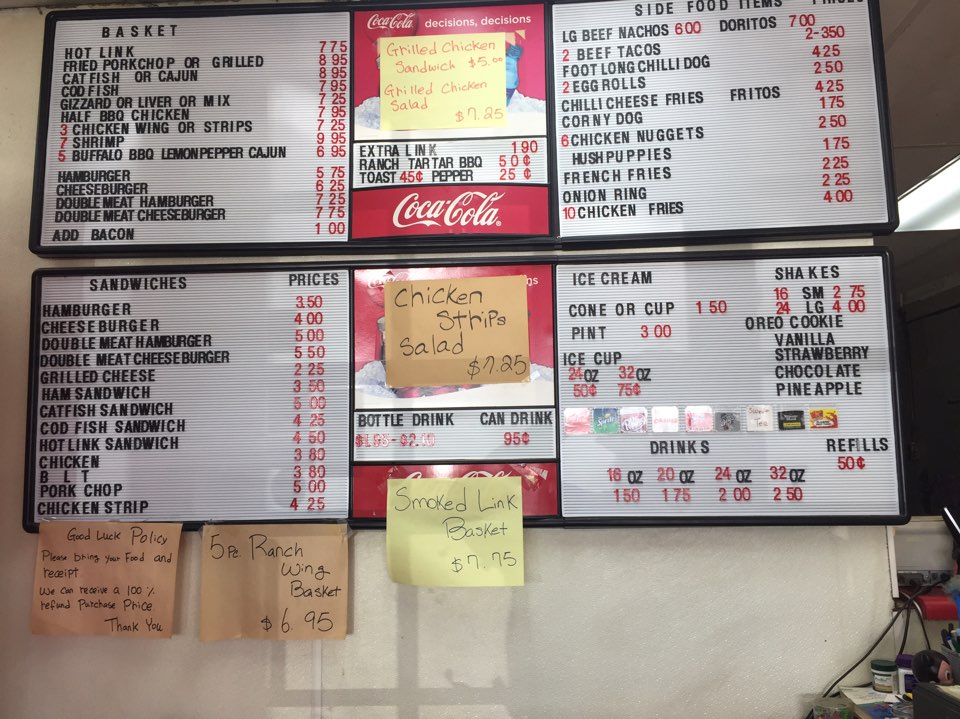 BASKET
HOT LINK 775
FRIED PORKCHOP OR GRILLED 895
CATFISH OR CAJUN 895
COD FISH 795
GIZZARD OR LIVER OR MIX 725
HALF BBQ CHICKEN 795
3 CHICKEN WING OR STRIPS 725
7 SHRIMP 995
5 BUFFALO BBQ LEMONPEPPER CAJUN 695
HAMBURGER 575
CHEESEBURGER 625
DOUBLE MEAT HAMBURGER 725
DOUBLE MEAT CHEESEBURGER 775
ADD BACON 100
Coca-Cola decisions, decisions
Grilled Chicken
Sandwich $5.00
Grilled Chicken
Salad
$7.25
EXTRA LINK 190
RANCH TARTAR BBQ 50¢
TOAST 45¢ PEPPER 25¢
Coca-Cola
SIDE FOOD ITEMS
LG BEEF NACHOS 600 DORITOS 700
2 BEEF TACOS 2-350
FOOT LONG CHILLI DOG 425
2 EGG ROLLS 250
CHILLI CHEESE FRIES FRITOS 425
CORNY DOG 175
6 CHICKEN NUGGETS 250
HUSHPUPPIES 175
FRENCH FRIES 225
ONION RING 225
10 CHICKEN FRIES 400
SANDWICHES PRICES
HAMBURGER 3.50
CHEESEBURGER 400
DOUBLE MEAT HAMBURGER 500
DOUBLE MEAT CHEESEBURGER 550
GRILLED CHEESE 225
HAM SANDWICH 350
CATFISH SANDWICH 500
COD FISH SANDWICH 425
HOT LINK SANDWICH 450
CHICKEN 380
B L T 380
PORK CHOP 500
CHICKEN STRIP 425
Chicken
Strips
Salad
$7.25
BOTTLE DRINK CAN DRINK
95¢
Smoked Link
Basket
$7.75
ICE CREAM
CONE OR CUP 150
PINT 300
ICE CUP
24OZ 32OZ
50¢ 75¢
SHAKES
16 SM 275
24 LG 400
OREO COOKIE
VANILLA
STRAWBERRY
CHOCOLATE
PINEAPPLE
Sprite
Sweet
Tea
DRINKS REFILLS
50¢
16 OZ 20 OZ 24 OZ 32 OZ
150 175 200 250
Good Luck Policy
Please bring your Food and
receipt
We can receive a 100 %
refund Purchase Price
Thank You
5 Pc. Ranch
Wing
Basket
$ 6.95